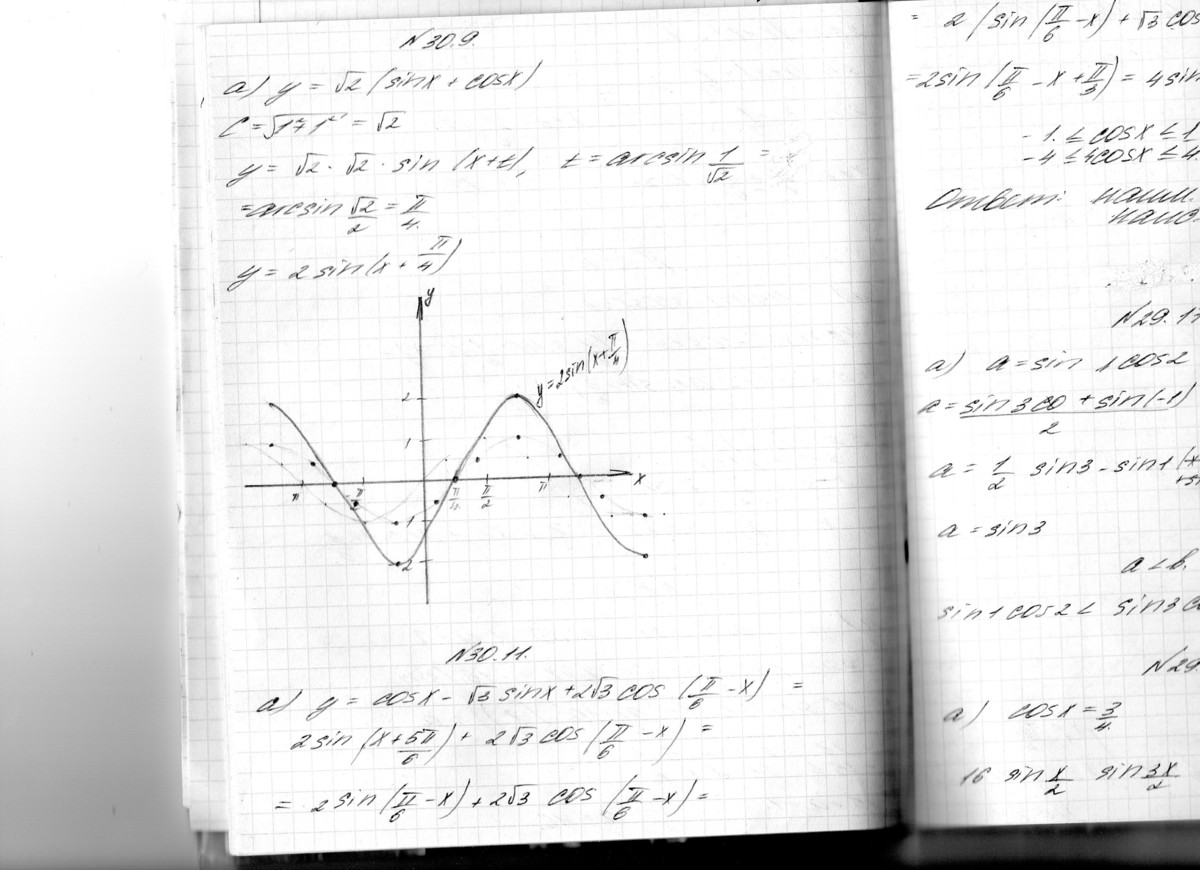 N 30.9.
а) y = √2 (sinx + cosx)
C = √1²+1² = √2
y = √2 · √2 · sin (x+t), t = arcsin 1/√2 =
= arcsin √2/2 = π/4.
y = 2 sin(x + π/4)
y
y = 2sin(x+π/4)
2
1
π π/2 π/4 π/2 π x
1
2
N30.11.
а) y = cosx - √3 sinx + 2√3 cos (π/6 - x) =
2sin (x + 5π/6) + 2√3 cos (π/6 - x) =
= 2 sin (π/6 - x) + 2√3 cos (π/6 - x) =
= 2 (sin (π/6 - x) + √3 cos
= 2sin (π/6 - x + π/3) = 4 sin
-1 ≤ cosx ≤ 1
-4 ≤ 4cosx ≤ 4.
Ответ: наим.
наиб.
N29.1
а) a = sin 1 cos2
a = sin 3 + sin(-1) / 2
a = 1/2 sin3 - sin1
a = sin3
a < b.
sin1 cos2 < sin3
N29
а) cosx = 3/4
16 sin x/2 sin 3x/2